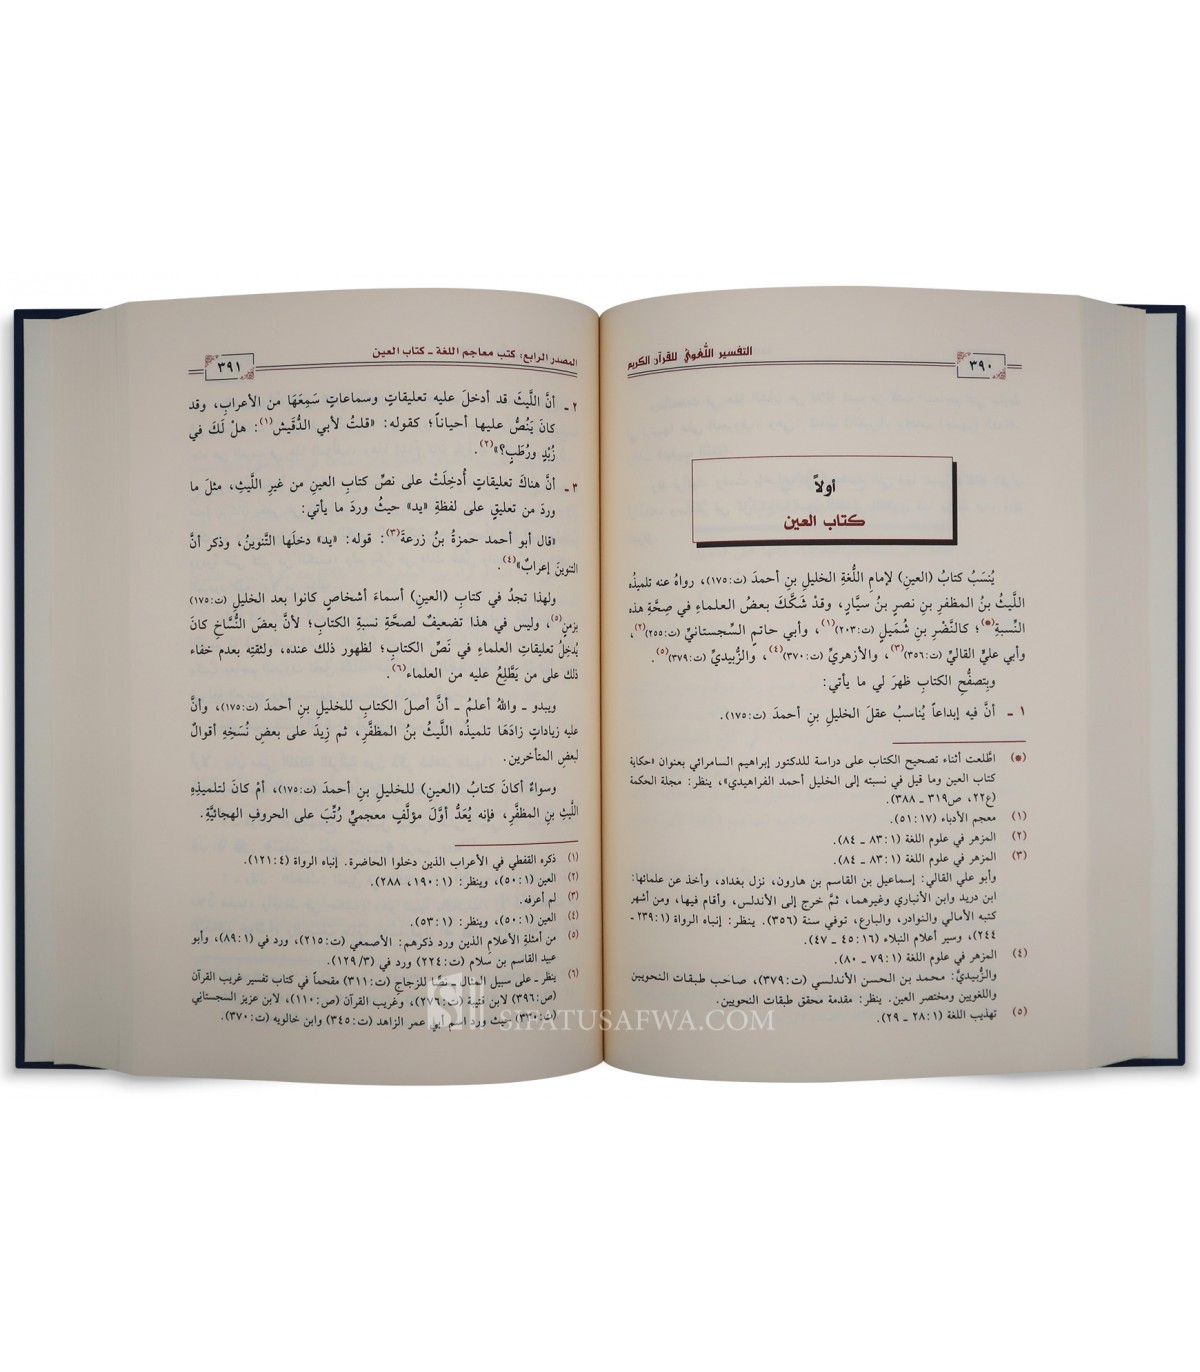 ٣٩٠
التفسير اللُّغويُّ للقرآن الكريم
أولاً
كتاب العين
يُنسَبُ كتابُ (العينِ) لإمامِ اللُّغةِ الخليلِ بنِ أحمدَ (ت:١٧٥)، رواهُ عنه تلميذُه
اللَّيثُ بنُ المظفرِ بنِ نصرِ بنُ سيَّارٍ، وقدْ شَكَّكَ بعضُ العلماءِ في صِحَّةِ هذه
النِّسبةِ(*)؛ كالنَّضْرِ بنِ شُميلٍ (ت:٢٠٣)(١)، وأبي حاتمٍ السِّجستانيِّ (ت:٢٥٥)(٢)،
وأبي عليٍّ القاليِّ (ت:٣٥٦)(٣)، والأزهريِّ (ت:٣٧٠)(٤)، والزُّبيديِّ (ت:٣٧٩)(٥).
وبِتصفُّحِ الكتابِ ظهرَ لي ما يأتي:
١ ـ أنَّ فيه إبداعاً يُناسبُ عقلَ الخليلِ بنِ أحمدَ (ت:١٧٥).
(*) اطَّلعت أثناء تصحيح الكتاب على دراسة للدكتور إبراهيم السامرائي بعنوان «حكاية
كتاب العين وما قيل في نسبته إلى الخليل أحمد الفراهيدي»، ينظر: مجلة الحكمة
(ع٢٢، ص٣١٩ ـ ٣٨٨).
(١) معجم الأدباء (١٧:٥١).
(٢) المزهر في علوم اللغة (١:٨٣ ـ ٨٤).
(٣) المزهر في علوم اللغة (١:٨٣ ـ ٨٤).
وأبو علي القالي: إسماعيل بن القاسم بن هارون، نزل بغداد، وأخذ عن علمائها:
ابن دريد وابن الأنباري وغيرهما، ثمَّ خرج إلى الأندلس، وأقام فيها، ومن أشهر
كتبه الأمالي والنوادر، والبارع، توفي سنة (٣٥٦). ينظر: إنباه الرواة (١:٢٣٩ ـ
٢٤٤)، وسير أعلام النبلاء (١٦:٤٥ ـ ٤٧).
(٤) المزهر في علوم اللغة (١:٧٩ ـ ٨٠).
والزُّبيديُّ: محمد بن الحسن الأندلسي (ت:٣٧٩)، صاحب طبقات النحويين
واللغويين ومختصر العين. ينظر: مقدمة محقق طبقات النحويين.
(٥) تهذيب اللغة (١:٢٨ ـ ٢٩).
المصدر الرابع: كتب معاجم اللغة ـ كتاب العين
٣٩١
٢ ـ أنَّ اللَّيثَ قد أدخلَ عليه تعليقاتٍ وسماعاتٍ سَمِعَهَا من الأعرابِ، وقد
كانَ يَنُصُّ عليها أحياناً؛ كقوله: «قلتُ لأبي الدُّقَيشِ(١): هلْ لَكَ في
زُبْدٍ ورُطَبٍ؟»(٢).
٣ ـ أنَّ هناكَ تعليقاتٍ أُدخِلَتْ على نصِّ كتابِ العينِ من غيرِ اللَّيثِ، مثلَ ما
وردَ من تعليقٍ على لفظةِ «يد» حيثُ وردَ ما يأتي:
«قال أبو أحمد حمزةُ بنُ زرعةَ(٣): قوله: «يد» دخلَها التَّنوينُ، وذكر أنَّ
التنوينَ إعرابٌ»(٤).
ولهذا تجدُ في كتابِ (العينِ) أسماءَ أشخاصٍ كانوا بعد الخليلِ (ت:١٧٥)
بزمنٍ(٥)، وليس في هذا تضعيفٌ لصحَّةِ نسبةِ الكتابِ؛ لأنَّ بعضَ النُّسَّاخِ كانَ
يُدخِلُ تعليقاتِ العلماءِ في نَصِّ الكتابِ؛ لظهور ذلك عنده، ولثقتِه بعدم خفاء
ذلك على من يَطَّلِعُ عليه من العلماءِ(٦).
ويبدو ـ واللهُ أعلمُ ـ أنَّ أصلَ الكتابِ للخليلِ بنِ أحمدَ (ت:١٧٥)، وأنَّ
عليه زياداتٍ زادَهَا تلميذُه اللَّيثُ بنُ المظفَّرِ، ثم زِيدَ على بعضِ نُسَخِهِ أقوالٌ
لبعضِ المتأخرين.
وسواءٌ أكانَ كتابُ (العينِ) للخليلِ بنِ أحمدَ (ت:١٧٥)، أمْ كانَ لتلميذِهِ
اللَّيثِ بنِ المظفَّرِ، فإنه يُعَدُّ أوَّلَ مؤلَّفٍ معجميٍّ رُتِّبَ على الحروفِ الهجائيَّةِ.
(١) ذكره القفطي في الأعراب الذين دخلوا الحاضرة. إنباه الرواة (٤:١٢١).
(٢) العين (١:٥٠)، وينظر: (١:١٩٠، ٢٨٨).
(٣) لم أعرفه.
(٤) العين (١:٥٠)، وينظر: (١:٥٣).
(٥) من أمثلةِ الأعلامِ الذين ورد ذكرهم: الأصمعي (ت:٢١٥)، ورد في (١:٨٩)، وأبو
عبيد القاسم بن سلام (ت:٢٢٤) ورد في (٣/١٢٩).
(٦) ينظر ـ على سبيل المثال ـ للزجاج (ت:٣١١) مقحماً في كتاب تفسير غريب القرآن
(ص:٣٩٦) لابن قتيبة (ت:٢٧٦)، وغريب القرآن (ص:١١٠)، لابن عزيز السجستاني
(ت:٣٣٠) حيث ورد اسم أبي عمر الزاهد (ت:٣٤٥) وابن خالويه (ت:٣٧٠).
SIFATUSAFWA.COM